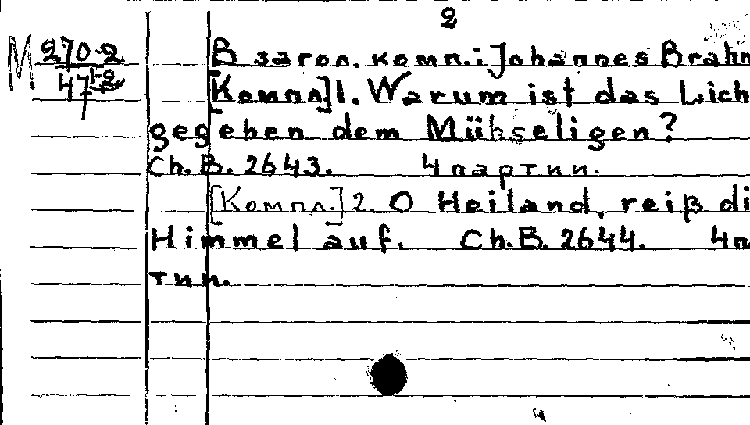 2
М 270-2
47
В загол. компл.: Johannes Brahm
[Компл.] 1. Warum ist das Lich
gegeben dem Mühseligen?
Ch.B. 2643. 4 партии.
[Компл.] 2. O Heiland, reiß di
Himmel auf. Ch.B. 2644. 4 п
тии.